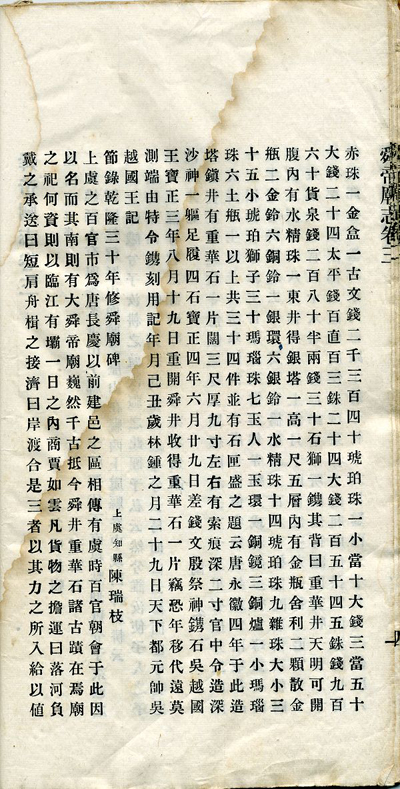 舜帝廟志卷二
赤珠一金盒一古文錢二千三百四十琥珀珠一小當十大錢三當五十
大錢二十四太平錢百直百三銖二十四大錢二百五十四五銖錢九百
六十貨泉錢二百八十半兩錢三十石獅一鐫其背曰重華井天明可開
腹內有水精珠一東井得銀塔一高一尺五層內有金瓶舍利二顆散金
瓶二金鈴六銅鈴一銀環六銀鈴一水精珠十四琥珀珠九雜珠大小三
十五小琥珀獅子三十瑪瑙珠七玉人一玉環一銅鏡三銅爐一小瑪瑙
珠六土瓶一以上共三十四件並有石匣盛之題云唐永徽四年于此造
塔鎮井有重華石一片闊三尺厚九寸左右有索痕深二寸官中令造深
沙神一軀足履四石寶正四年六月廿九日差錢文殷祭神鐫石吳越國
王寶正三年八月十九日重開舜井收得重華石一片竊恐年移代遠莫
測端由特令鐫刻用記年月己丑歲林鍾之月二十九日天下都元帥吳
越國王記
節錄乾隆三十年修舜廟碑
上虞知縣陳瑞枝
上虞之百官市爲唐長慶以前建邑之區相傳有虞時百官朝會于此因
以名而其南則有大舜帝廟巍然千古抵今舜井重華石諸古蹟在焉廟
之祀何資則以臨江有壩一日之內商賈如雲凡貨物之擔運曰落河負
戴之承送曰短肩舟楫之接濟曰岸渡合是三者以其力之所入給以値